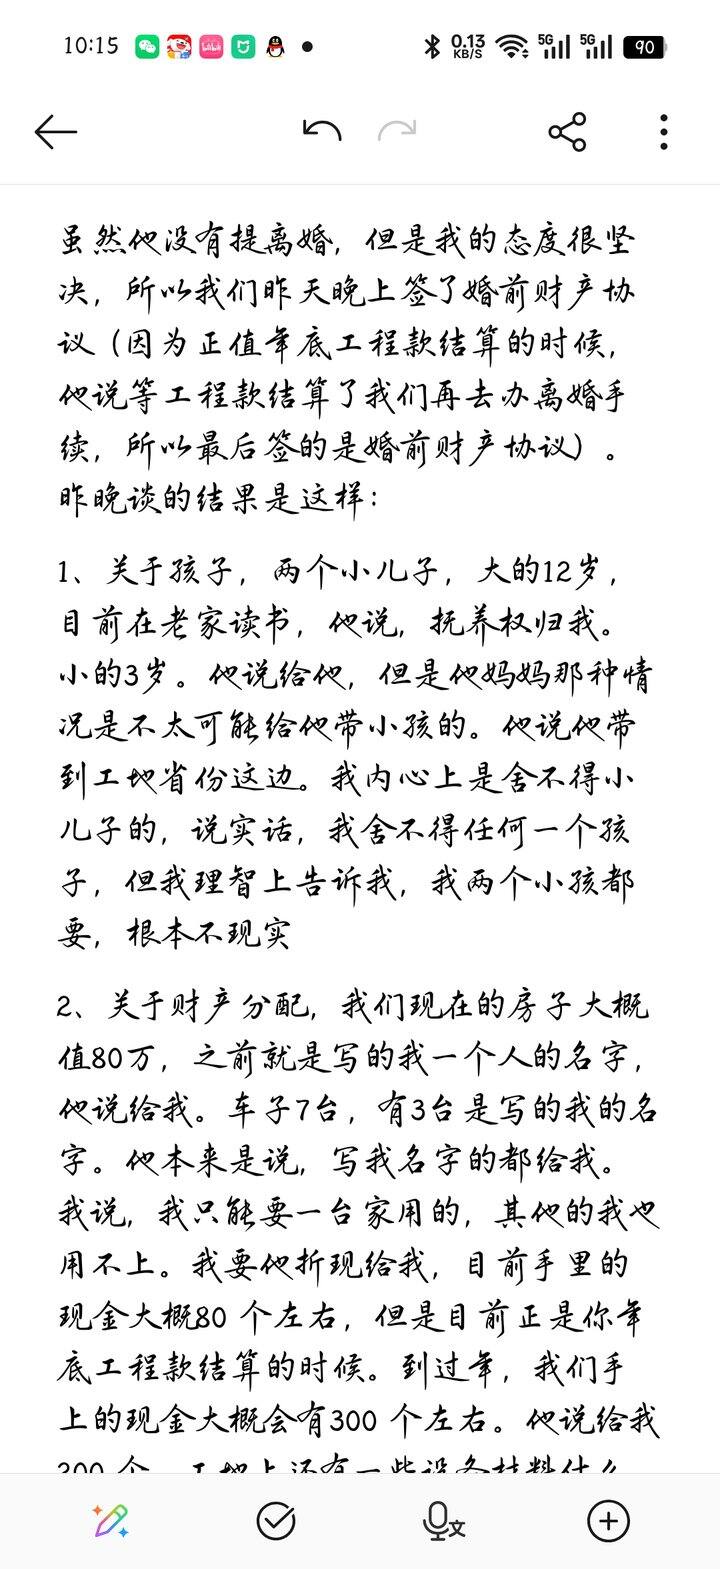 10:15
0.13
KB/S
5G
5G
90
虽然他没有提离婚，但是我的态度很坚
决，所以我们昨天晚上签了婚前财产协
议（因为正值年底工程款结算的时候，
他说等工程款结算了我们再去办离婚手
续，所以最后签的是婚前财产协议）。
昨晚谈的结果是这样：
1、关于孩子，两个小儿子，大的12岁，
目前在老家读书，他说，抚养权归我。
小的3岁。他说给他，但是他妈妈那种情
况是不太可能给他带小孩的。他说他带
到工地省份这边。我内心上是舍不得小
儿子的，说实话，我舍不得任何一个孩
子，但我理智上告诉我，我两个小孩都
要，根本不现实
2、关于财产分配，我们现在的房子大概
值80万，之前就是写的我一个人的名字，
他说给我。车子7台，有3台是写的我的名
字。他本来是说，写我名字的都给我。
我说，我只能要一台家用的，其他的我也
用不上。我要他折现给我，目前手里的
现金大概80 个左右，但是目前正是你年
底工程款结算的时候。到过年，我们手
上的现金大概会有300 个左右。他说给我
200 个，工地上还有一些设备材料什么
文